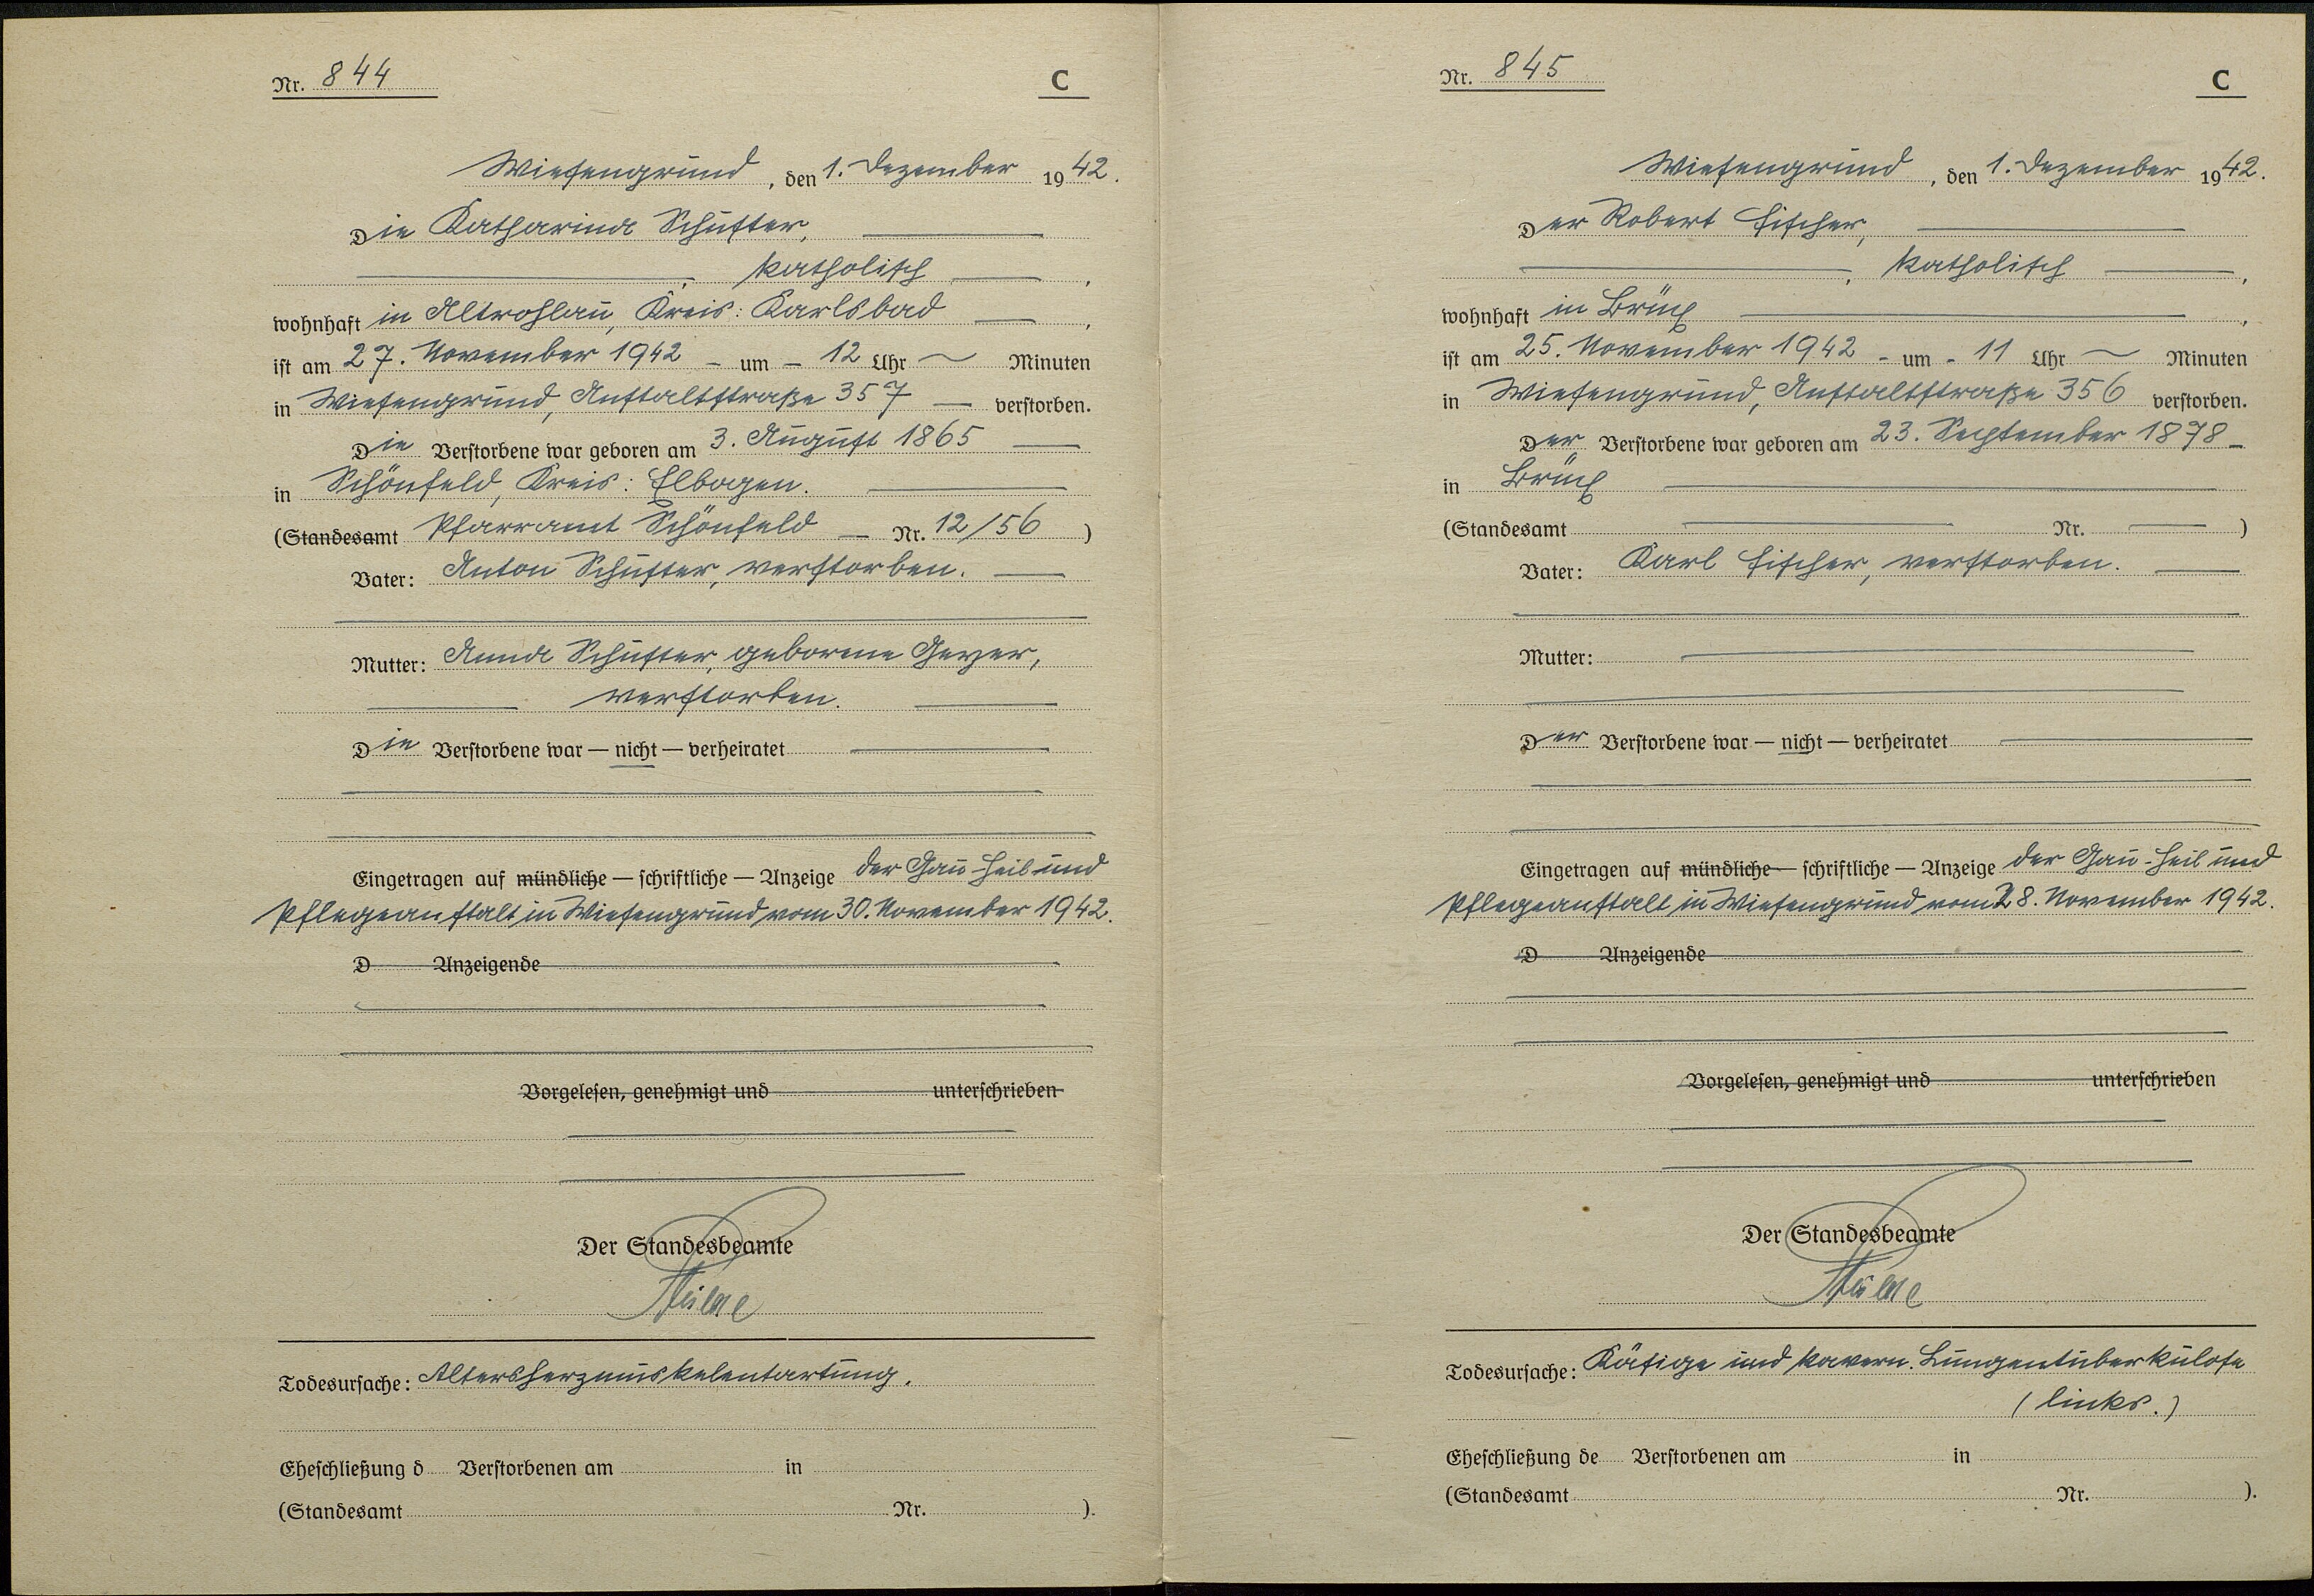 Nr. 844
C
Wiesengrund, den 1. Dezember 1942.
Die Katharina Schuster,
katholisch,
wohnhaft in Altrohlau, Kreis: Karlsbad,
ist am 27. November 1942 - um - 12 Uhr Minuten
in Wiesengrund, Anstaltstraße 357 verstorben.
Die Verstorbene war geboren am 3. August 1865
in Schönfeld, Kreis: Elbogen.
(Standesamt Pfarramt Schönfeld Nr. 12/56)
Vater: Anton Schuster, verstorben.
Mutter: Anna Schuster, geborene Geyer,
verstorben.
Die Verstorbene war — nicht — verheiratet
Eingetragen auf mündliche — schriftliche — Anzeige der Gau-Heil und
Pflegeanstalt in Wiesengrund vom 30. November 1942.
D Anzeigende
Vorgelesen, genehmigt und unterschrieben
Der Standesbeamte
Todesursache: Altersherzmuskelentartung.
Eheschließung d Verstorbenen am in
(Standesamt Nr. ).
Nr. 845
C
Wiesengrund, den 1. Dezember 1942.
Der Robert Fischer,
katholisch,
wohnhaft in Brüx,
ist am 25. November 1942 - um - 11 Uhr Minuten
in Wiesengrund, Anstaltstraße 356 verstorben.
Der Verstorbene war geboren am 23. September 1878
in Brüx
(Standesamt Nr. )
Vater: Karl Fischer, verstorben.
Mutter:
Der Verstorbene war — nicht — verheiratet
Eingetragen auf mündliche — schriftliche — Anzeige der Gau-Heil und
Pflegeanstalt in Wiesengrund vom 28. November 1942.
D Anzeigende
Vorgelesen, genehmigt und unterschrieben
Der Standesbeamte
Todesursache: Käsige und kavern. Lungentuberkulose
(links.)
Eheschließung de Verstorbenen am in
(Standesamt Nr. ).